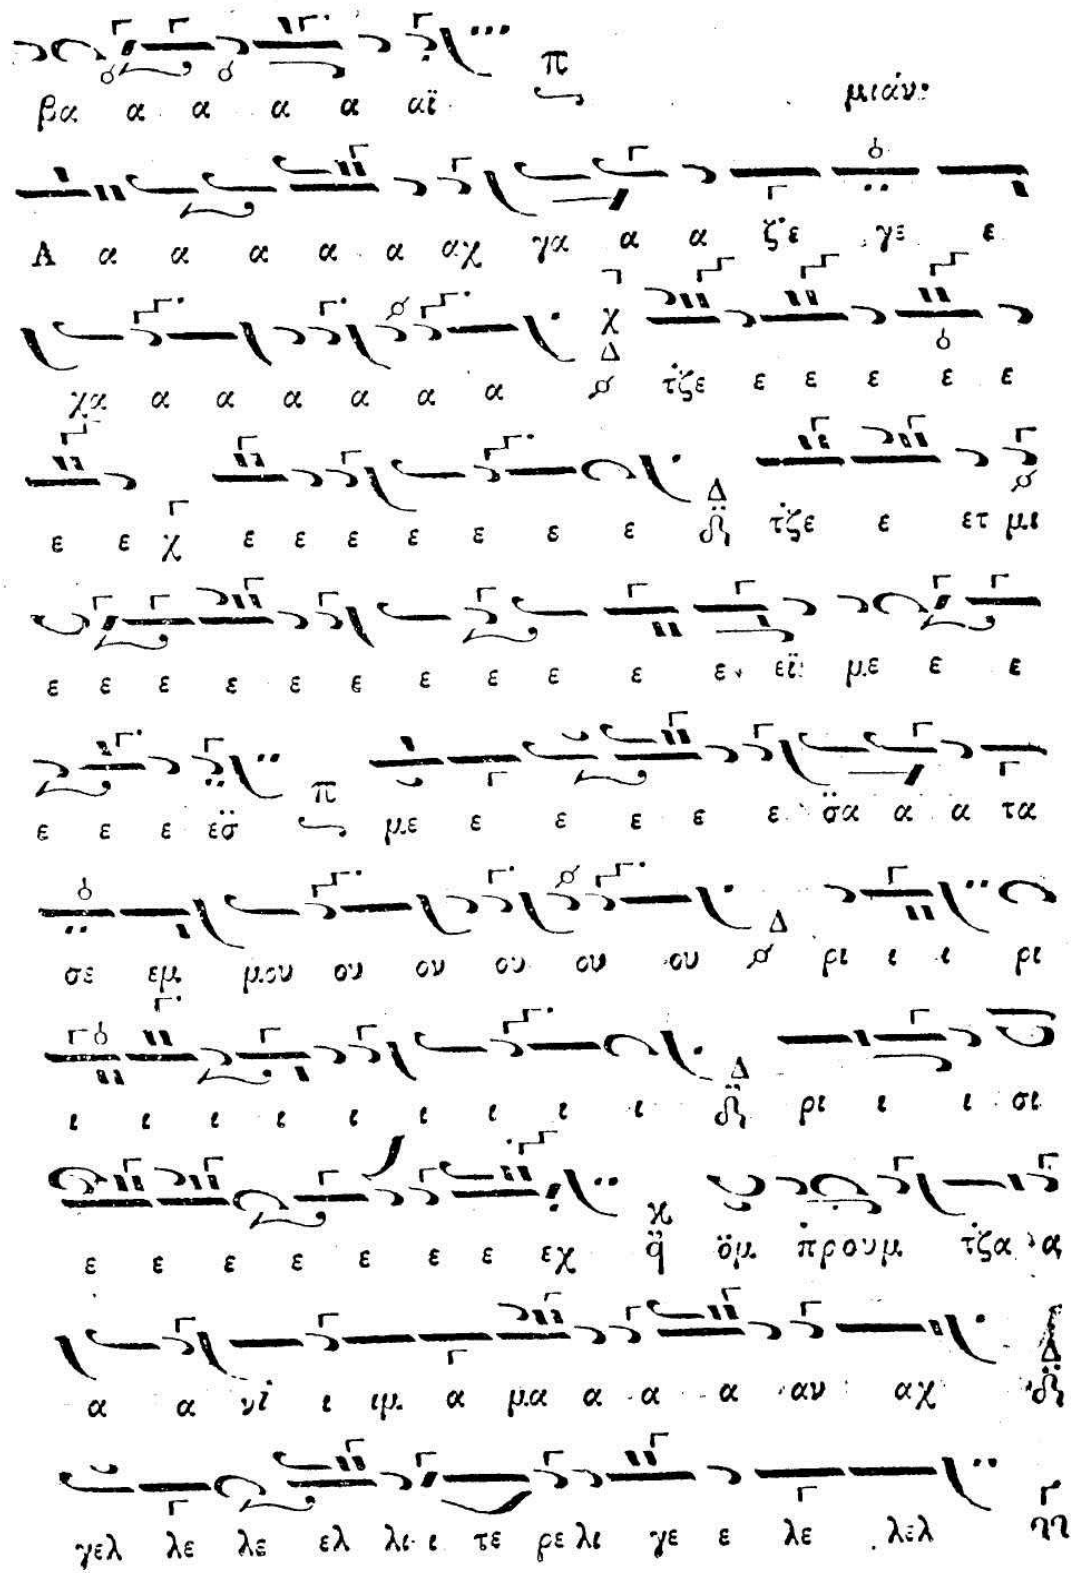 βα α α α α αϊ π μιάν:
Α α α α α α αχ γα α α ζε γε ε
χα α α α α α α χ Δ τζε ε ε ε ε ε
ε ε χ ε ε ε ε ε ε ε Δ τζε ε ετ μι
ε ε ε ε ε ε ε ε ε ε ε εϊ με ε ε
ε ε ε εσ π με ε ε ε ε ε σα α α τα
σε εμ μου ου ου ου ου ου Δ ρι ι ι ρι
ι ι ι ι ι ι ι ι ι Δ ρι ι ι σι
ε ε ε ε ε ε ε εχ ϗ ϥ ὄμ προυμ τζα α
α α νί ι ιμ α μα α α α αν αχ Δ
γελ λε λε ελ λι ι τε ρε λι γε ε λε λελ